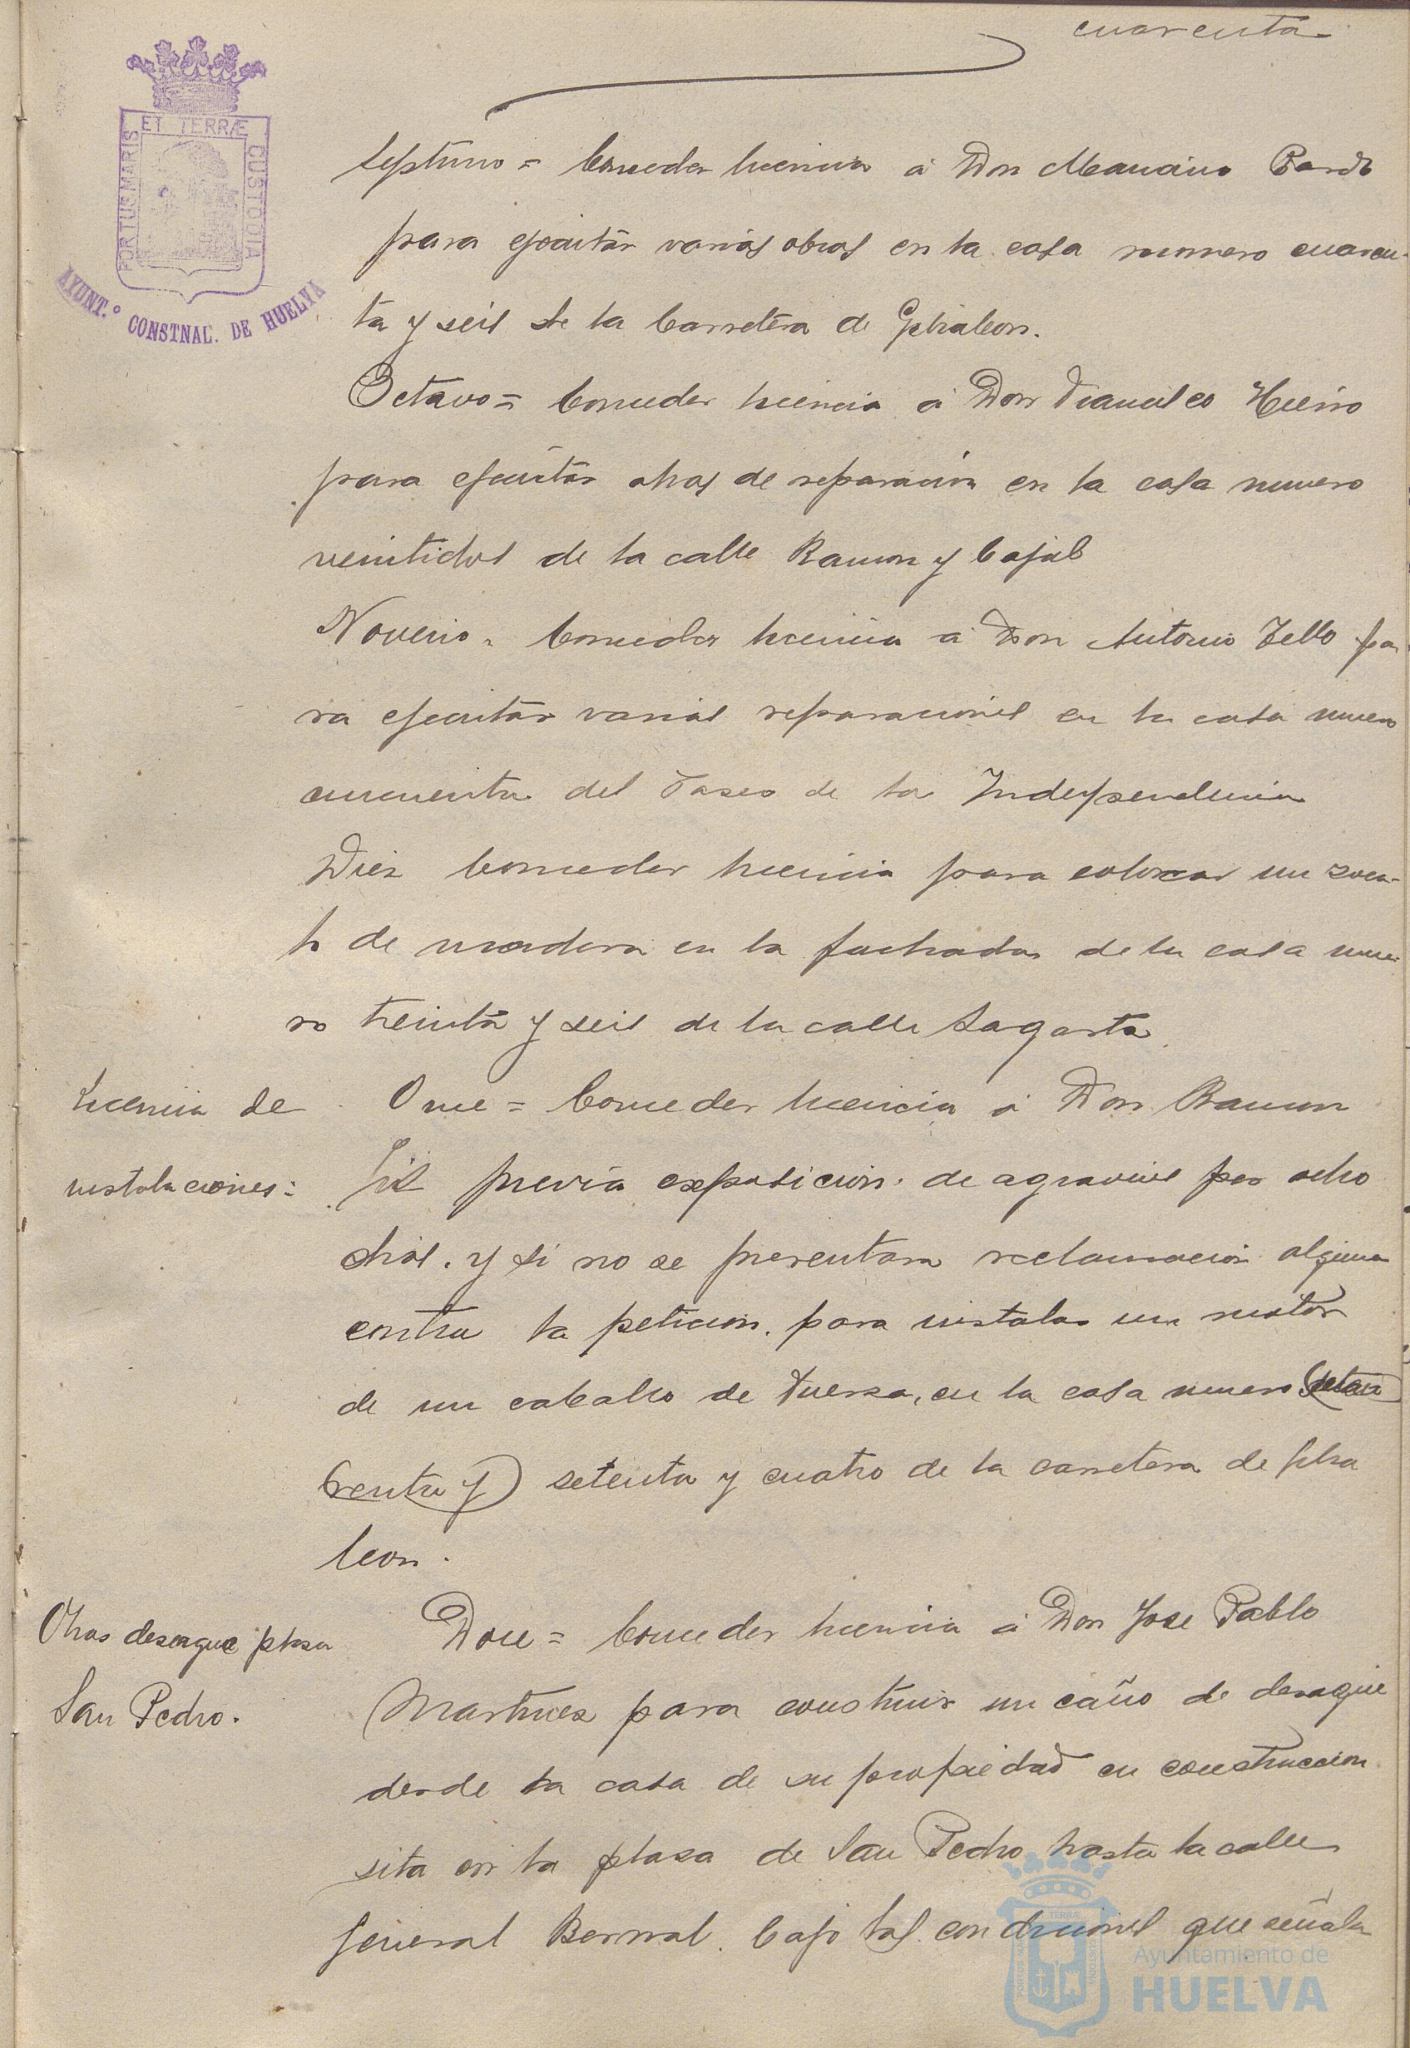 cuarenta
PORTUS MARIS ET TERRÆ CUSTODIA
AYUNT.º CONSTNAL. DE HUELVA
septimo = Conceder licencia á Don Mariano Pardo
para ejecutar varias obras en la casa numero cuaren-
ta y seis de la Carretera de Gibraleon.
Octavo = Conceder licencia á Don Francisco Hierro
para ejecutar obras de reparación en la casa numero
veintidos de la calle Ramon y Cajal
Noveno = Conceder licencia á Don Antonio Tello pa
ra ejecutar varias reparaciones en la casa numero
cincuenta del Paseo de la Independencia
Diez Conceder licencia para colocar un zoca-
lo de madera en la fachada de la casa nume-
ro treinta y seis de la calle Sagasta
Licencia de
instalaciones =
Once = Conceder licencia á Don Ramon
Gil previa exposicion de agravios por ocho
dias, y si no se presentara reclamacion alguna
contra la peticion, para instalar un motor
de un caballo de fuerza, en la casa numero
y) setenta y cuatro de la carretera de Gibra
leon.
Obras desague plaza
San Pedro.
Doce = Conceder licencia á Don Jose Pablo
Martinez para construir un caño de desagüe
desde la casa de su propiedad en construccion
sita en la plaza de San Pedro hasta la calle
General Bernal, bajo las condiciones que señala
Ayuntamiento de
HUELVA